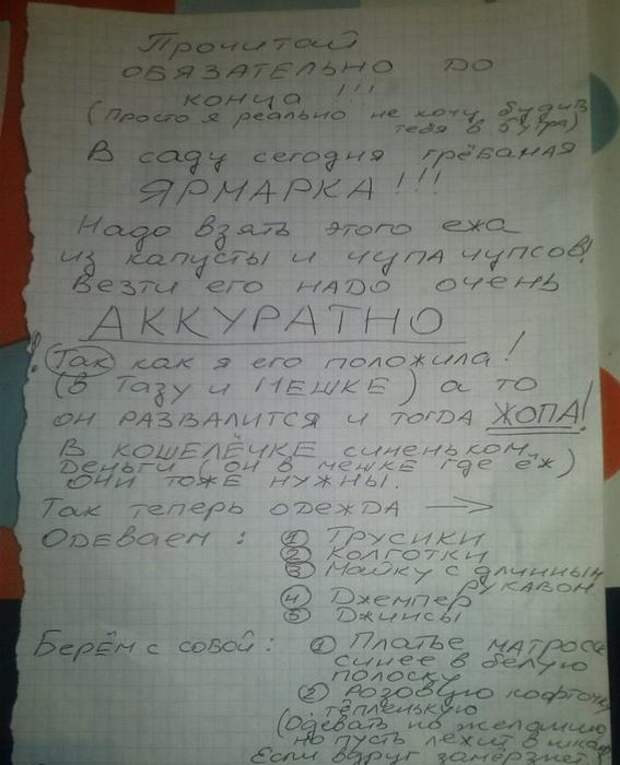 Прочитай
ОБЯЗАТЕЛЬНО ДО
конца!!!
(Просто я реально не хочу будить
тебя в 6 утра)
В саду сегодня грёбаная
ЯРМАРКА!!!
Надо взять этого ежа
из капусты и чупа чупсов!
Везти его НАДО очень
АККУРАТНО
! Так как я его положила!
(В ТАЗУ и МЕШКЕ) а то
он РАЗВАЛИТСЯ и тогда ЖОПА!
В КОШЕЛЁЧКЕ синеньком
Деньги (он в мешке где ёж)
Они тоже нужны.
Так теперь одежда →
Одеваем: ① Трусики
② Колготки
③ Майку с длинным
рукавом
④ Джемпер
⑤ Джинсы
Берём с собой: ① Платье матроса
синее в белую
полоску
② Розовую кофточку
тёпленькую
(Одевать по желанию
но пусть лежит в шкафу
Если вдруг замёрзнет)